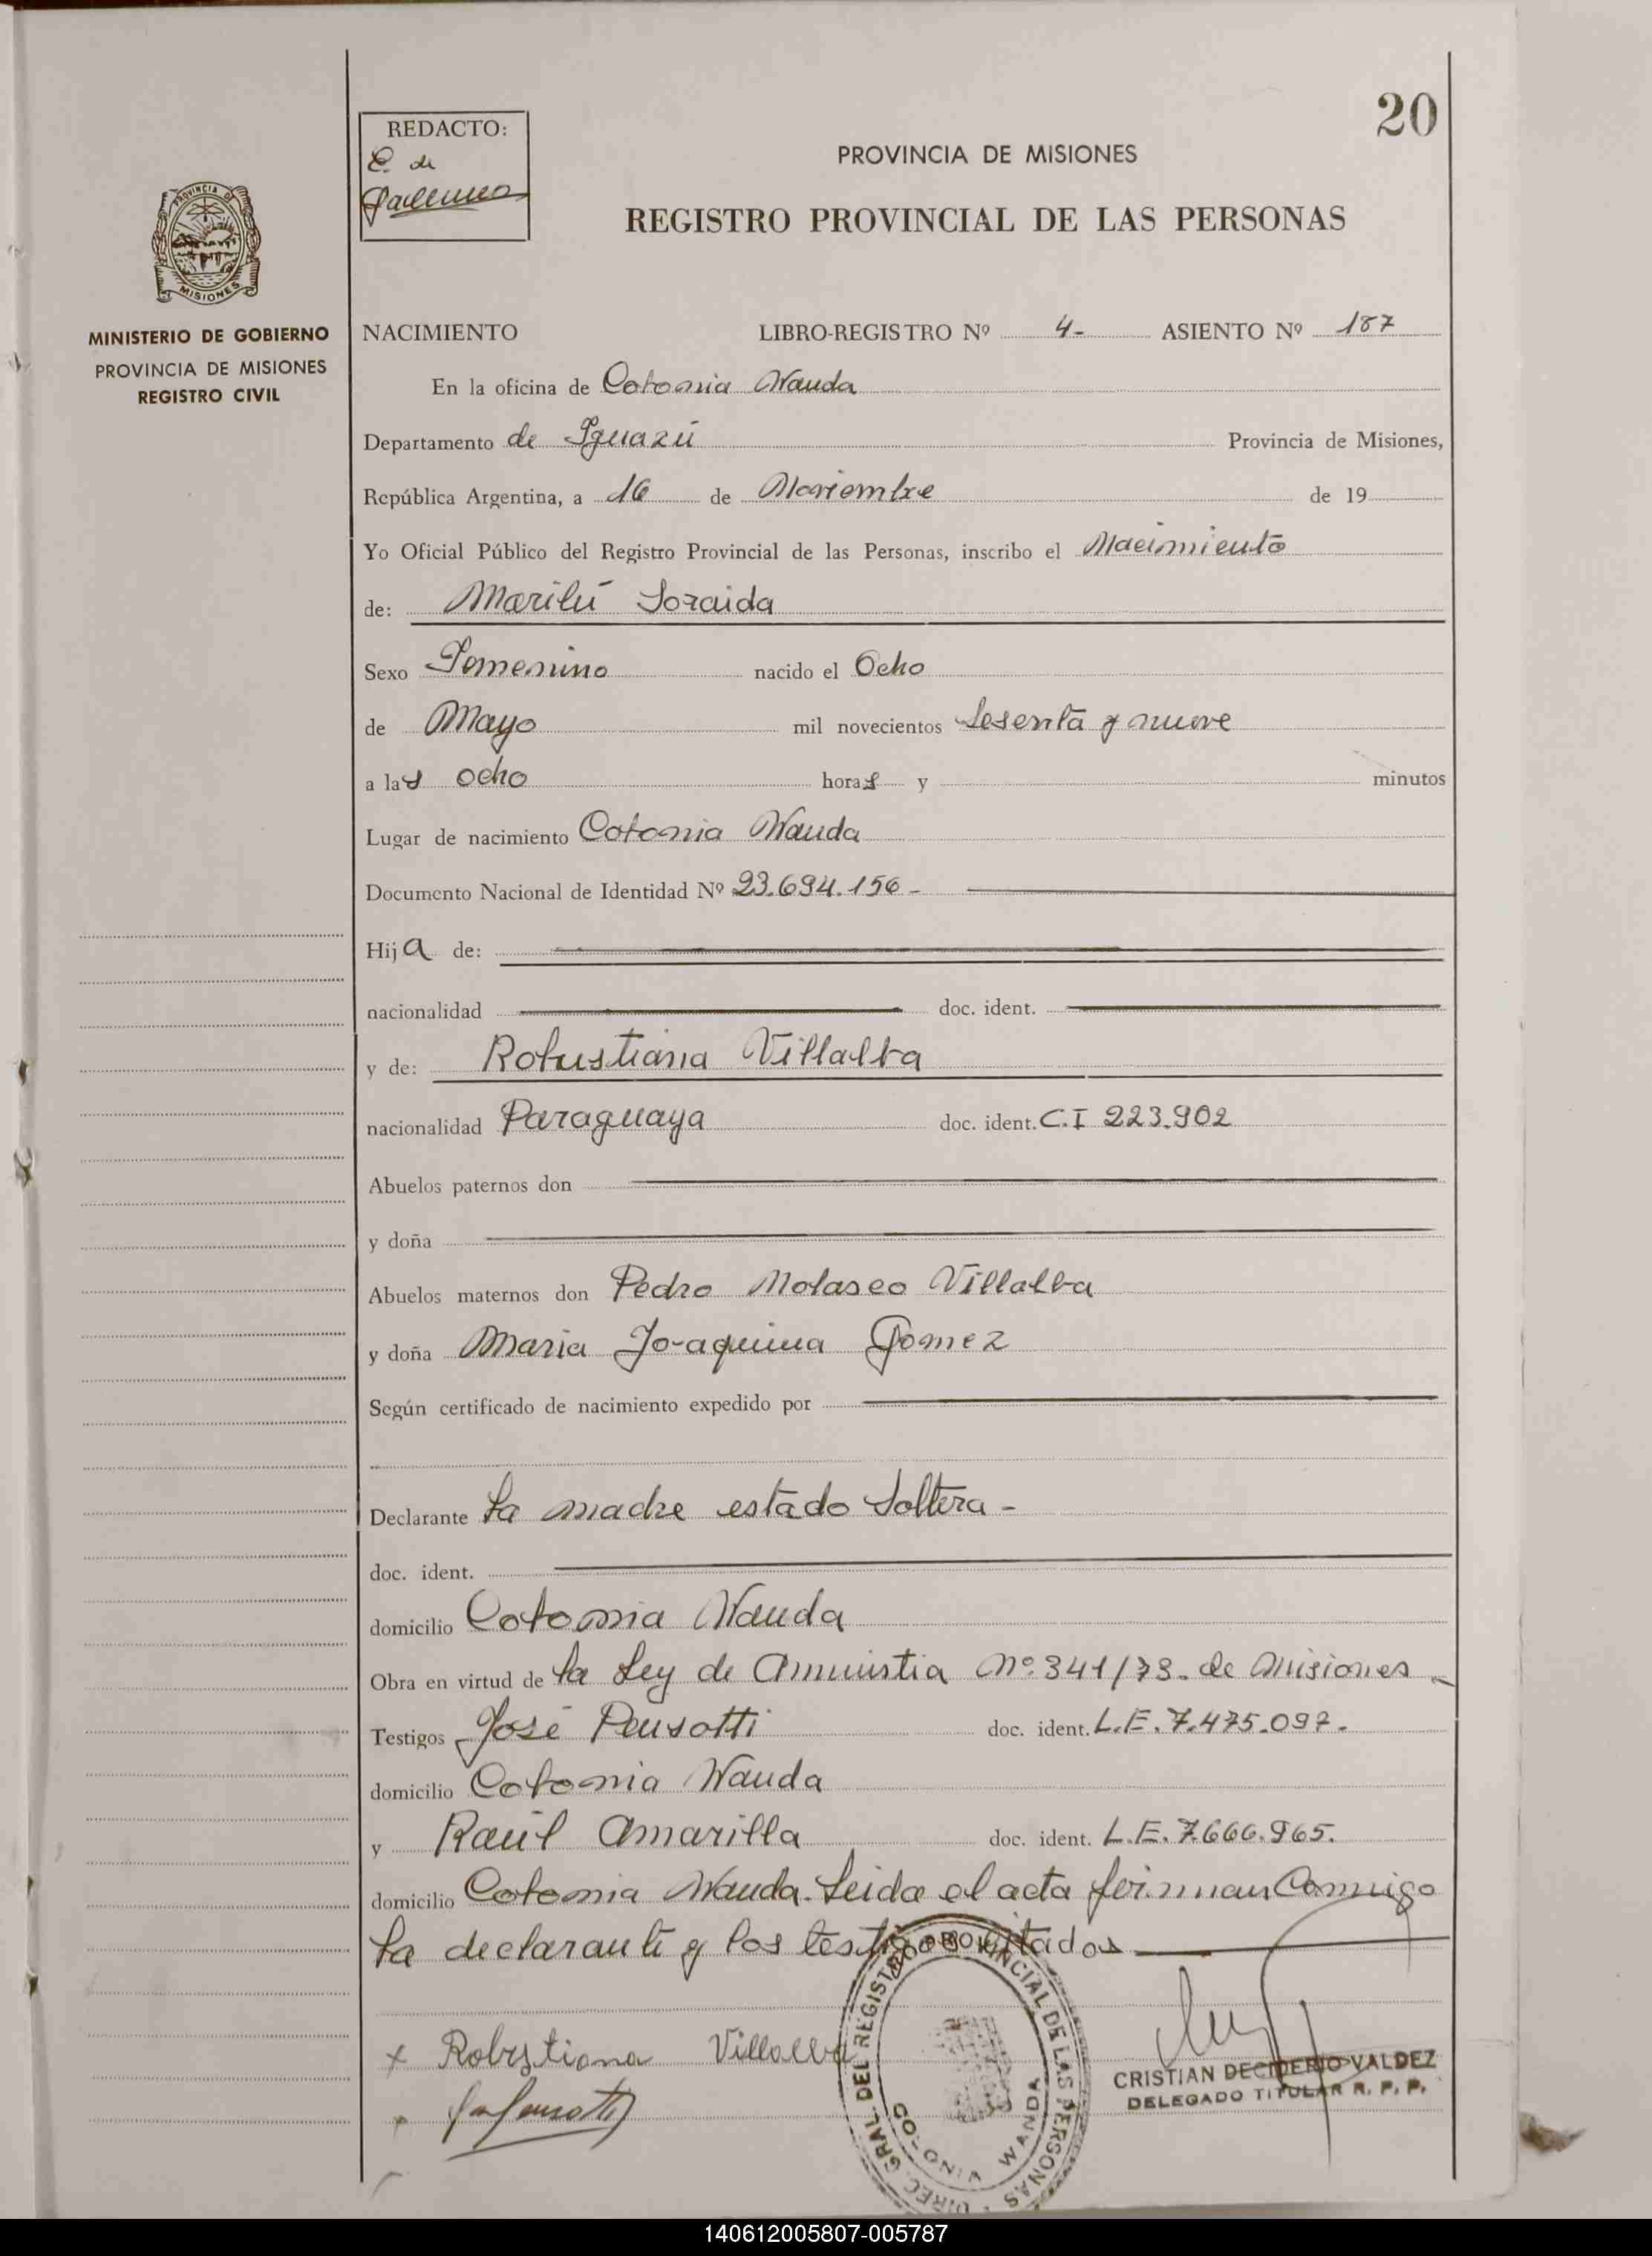 20
REDACTO:
E. de
PROVINCIA DE MISIONES
REGISTRO PROVINCIAL DE LAS PERSONAS
PROVINCIA DE
MISIONES
MINISTERIO DE GOBIERNO
PROVINCIA DE MISIONES
REGISTRO CIVIL
NACIMIENTO LIBRO-REGISTRO Nº 4- ASIENTO Nº 187
En la oficina de Colonia Wanda
Departamento de Iguazú Provincia de Misiones,
República Argentina, a 16 de Noviembre de 19
Yo Oficial Público del Registro Provincial de las Personas, inscribo el Nacimiento
de: Marilú Soraida
Sexo Femenino nacido el Ocho
de Mayo mil novecientos Sesenta y nueve
a las ocho horas y minutos
Lugar de nacimiento Colonia Wanda
Documento Nacional de Identidad Nº 23.694.156-
Hija de:
nacionalidad doc. ident.
y de: Robustiana Villalba
nacionalidad Paraguaya doc. ident. C.I 223.902
Abuelos paternos don
y doña
Abuelos maternos don Pedro Nolasco Villalba
y doña Maria Joaquina Gomez
Según certificado de nacimiento expedido por
Declarante La madre estado Soltera-
doc. ident.
domicilio Colonia Wanda
Obra en virtud de la Ley de Amnistia Nº 341/73- de Misiones
Testigos José Pensotti doc. ident. L.E. 7.475.097.
domicilio Colonia Wanda
y Raúl Amarilla doc. ident. L.E. 7.666.965.
domicilio Colonia Wanda. Leida el acta firman Conmigo
la declarante y los testigos citados
x Robustiana Villalba
DIREC. GRAL. DEL REGISTRO PROVINCIAL DE LAS PERSONAS
COLONIA WANDA
CRISTIAN DECIDERIO VALDEZ
DELEGADO TITULAR R. P. P.
140612005807-005787